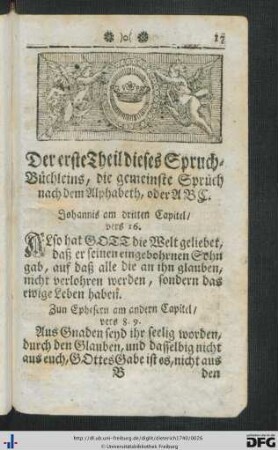 17
Der erste Theil dieses Spruch-
Büchleins, die gemeinste Sprüch
nach dem Alphabeth, oder A B C.
Johannis am dritten Capitel/
vers 16.
Also hat GOTT die Welt geliebet,
daß er seinen eingebohrnen Sohn
gab, auf daß alle die an ihn glauben,
nicht verlohren werden, sondern das
ewige Leben haben.
Zun Ephesern am andern Capitel/
vers 8. 9.
Aus Gnaden seyd ihr seelig worden,
durch den Glauben, und dasselbig nicht
aus euch, GOttes Gabe ist es, nicht aus
B den
http://dl.ub.uni-freiburg.de/diglit/ellenrich1740/0026
© Universitätsbibliothek Freiburg